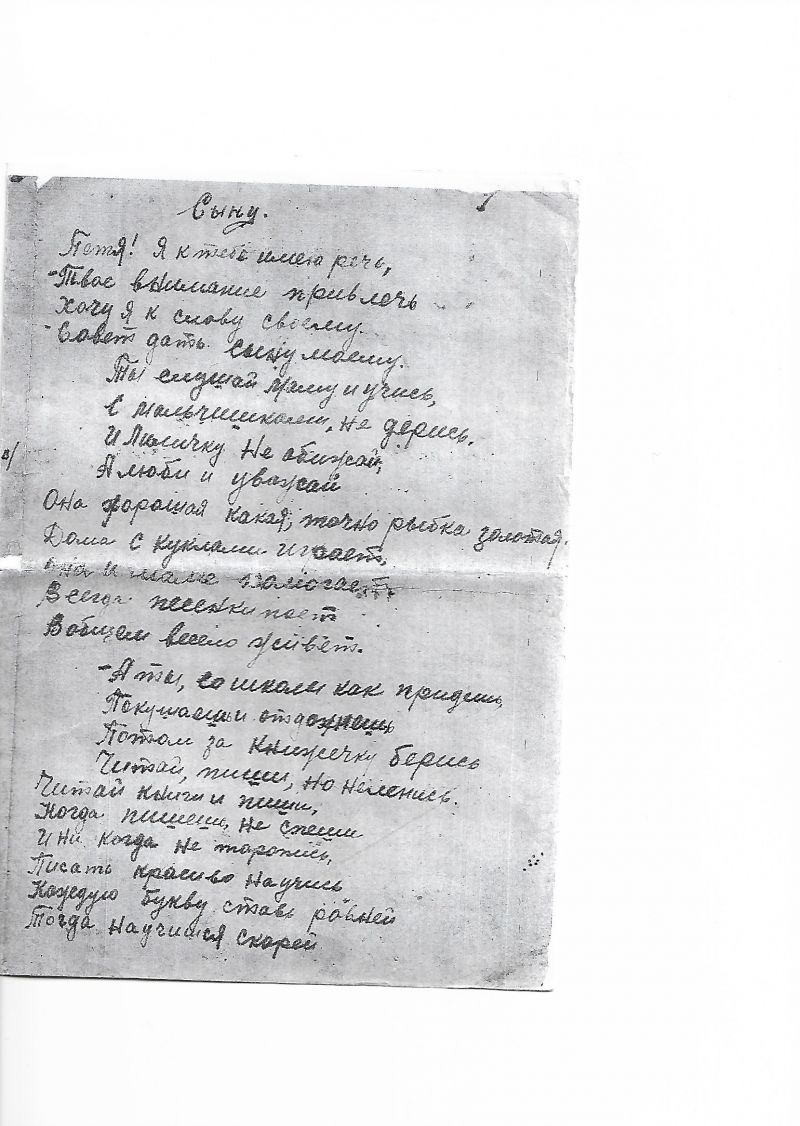 Сыну.
Петя! Я к тебе имею речь,
-Твое внимание привлечь
Хочу я к слову своему.
-Совет дать сыну моему.
Ты слушай маму и учись,
С мальчишками, не дерись.
И Люсичку не обижай,
А люби и уважай
Она хорошая какая, точно рыбка золотая.
Дома с куклами играет,
она и маме помогает.
Всегда песенки поет
Вобщем весело живёт.
-А ты, со школы как придешь,
Покушаеш и отдохнешь
Потом за книжечку берись
Читай, пиши, но неленись.
Читай книги и пиши,
Когда пишешь, не спеши
И ни когда не торопись,
Писать красиво научись
Каждую букву ставь ровней
Тогда научишся скорей